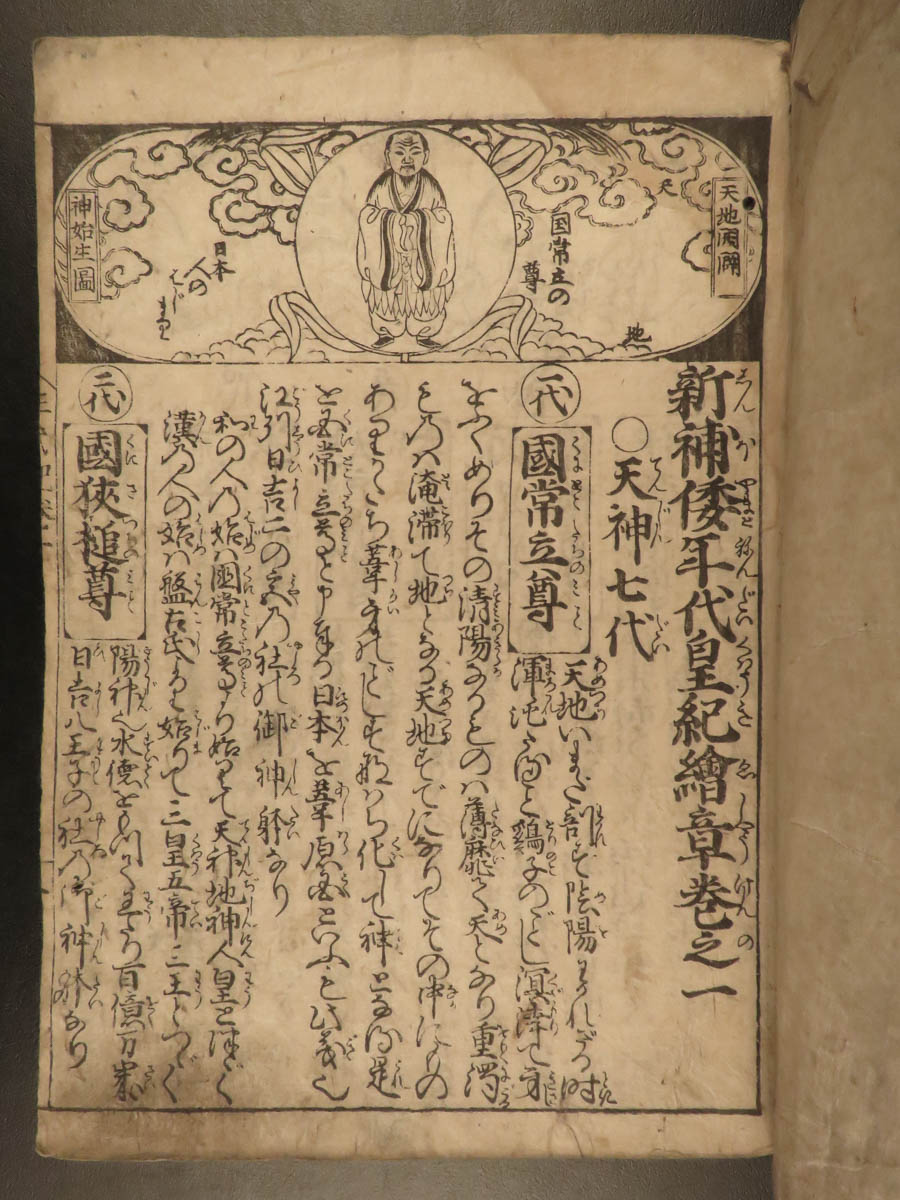 天地開闢
天
地
国常立の
尊
日本
人の
はじまり
神始生圖
新補倭年代皇紀繪章巻之一
○天神七代
一代
國常立尊
天地いまだ剖ず陰陽わかれざる時
渾沌たる事鶏子のごとし溟涬て牙
をふくめりその清陽なるものハ薄靡て天となり重濁
ものハ淹滞て地となる天地すでになりてその中にもの
ありかたち葦牙のごとくすなはち化して神となる是
を国常立尊と申奉る日本を葦原国といふも此義也
江州日吉二の宮の社の御神躰なり
和の人の始ハ國常立尊より始りて天神地神人皇とつゞく
漢の人の始ハ盤古氏より始りて三皇五帝三王とつゞく
二代
國狹槌尊
陽神也水徳をもつてたもち百億万歳
日吉八王子の社の御神躰なり